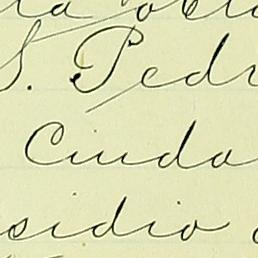 la
S. Pedr
Ciuda
sidio